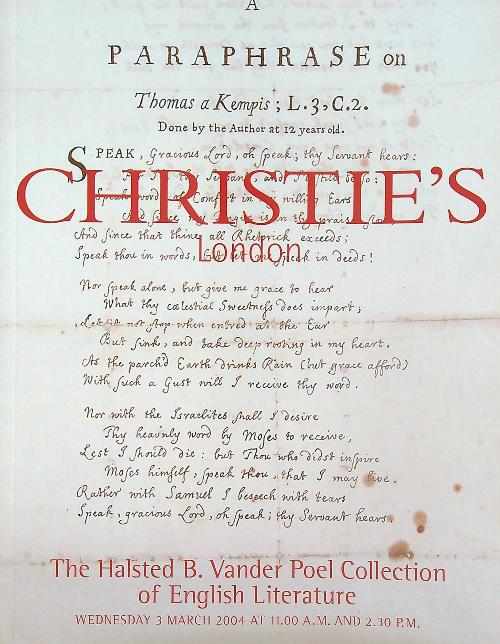 A
PARAPHRASE on
Thomas a Kempis; L.3, C.2.
Done by the Author at 12 years old.
SPEAK, Gracious Lord, oh speak; thy Servant hears:
For I'm thy Servant, and I'll still be so:
Speak words of Comfort in my willing Ears
And since my Tongue is in thy praise slow
CHRISTIE'S
And since that thine all Rhetorick exceeds;
London
Speak thou in words, but let me speak in deeds!
Nor speak alone, but give me grace to hear
What thy cælestial Sweetness does impart;
Let it not stop when entred at the Ear
But sink, and take deep rooting in my heart.
As the parch'd Earth drinks Rain (but grace afford)
With such a Gust will I receive thy word.
Nor with the Israelites shall I desire
Thy heav'nly word by Moses to receive,
Lest I should die: but Thou who didst inspire
Moses himself, speak thou, that I may live.
Rather with Samuel I beseech with tears
Speak, gracious Lord, oh speak; thy Servant hears.
The Halsted B. Vander Poel Collection
of English Literature
WEDNESDAY 3 MARCH 2004 AT 11.00 A.M. AND 2.30 P.M.